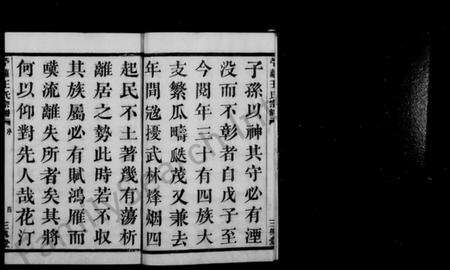 子孫以神其守必有湮
没而不彰者自戊子至
今閱年三十有四族大
支繁瓜疇瓞茂又兼去
年間冦擾武林烽烟四
起民不土著幾有蕩析
離居之勢此時若不収
其族屬必有賦鴻雁而
嘆流離失所者矣其將
何以仰對先人哉花汀
FamilySearch